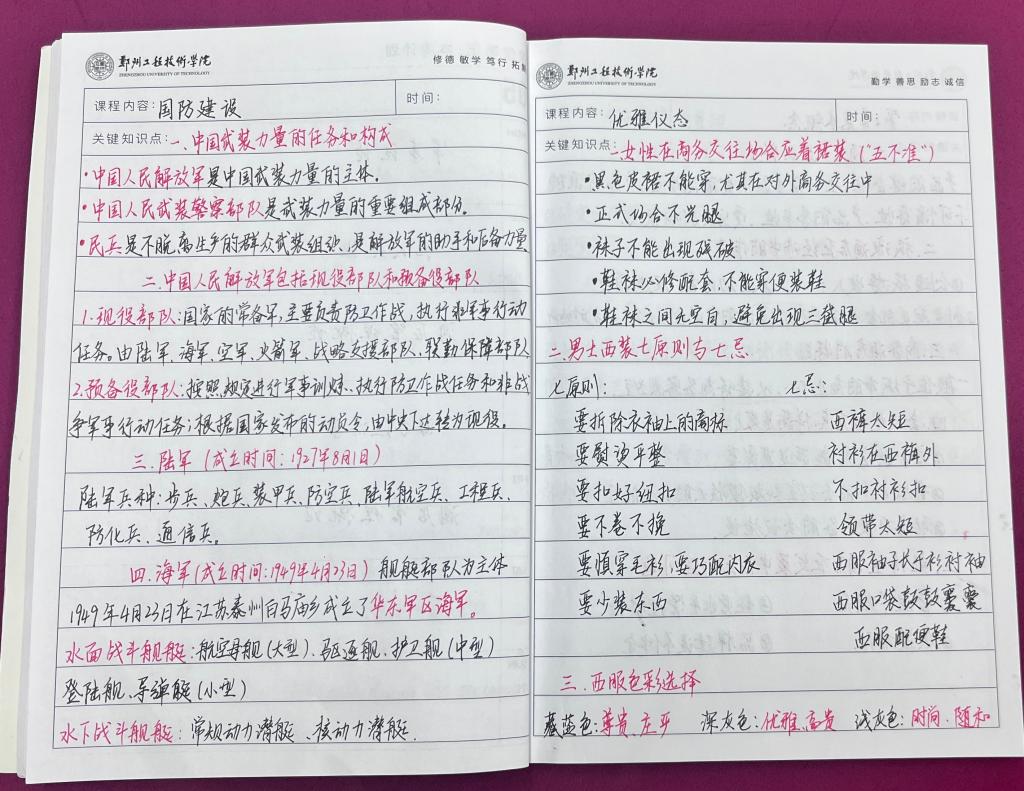 鄭州工程技術學院
ZHENGZHOU UNIVERSITY OF TECHNOLOGY
修德 敏学 笃行 拓
课程内容：国防建设
时间：
关键知识点：一.中国武装力量的任务和构成
•中国人民解放军是中国武装力量的主体.
•中国人民武装警察部队是武装力量的重要组成部分。
•民兵是不脱离生产的群众武装组织,是解放军的助手和后备力量
二.中国人民解放军包括现役部队和预备役部队
1.现役部队:国家的常备军,主要负责防卫作战,执行非军事行动
任务。由陆军、海军、空军、火箭军、战略支援部队、联勤保障部队
2.预备役部队:按照规定进行军事训练、执行防卫作战任务和非战
争军事行动任务;根据国家发布的动员令,由中央下达转为现役。
三.陆军(成立时间:1927年8月1日)
陆军兵种:步兵、炮兵、装甲兵、防空兵、陆军航空兵、工程兵、
防化兵、通信兵。
四.海军(成立时间:1949年4月23日) 舰艇部队为主体
1949年4月23日在江苏泰州白马庙乡成立了华东军区海军。
水面战斗舰艇:航空母舰(大型)、驱逐舰、护卫舰(中型)
登陆舰、导弹艇(小型)
水下战斗舰艇:常规动力潜艇、核动力潜艇.
鄭州工程技術學院
ZHENGZHOU UNIVERSITY OF TECHNOLOGY
勤学 善思 励志 诚信
课程内容：优雅仪态
时间：
关键知识点：一.女性在商务交往场合应着裙装("五不准")
•黑色皮裙不能穿,尤其在对外商务交往中
•正式场合不光腿
•袜子不能出现残破
•鞋袜必修配套,不能穿便装鞋
•鞋袜之间无空白,避免出现三截腿
二.男士西装七原则与七忌
七原则: 七忌:
要拆除衣袖上的商标 西裤太短
要熨烫平整 衬衫在西裤外
要扣好纽扣 不扣衬衫扣
要不卷不挽 领带太短
要慎穿毛衫 要巧配内衣 西服袖子长于衫衬袖
要少装东西 西服口袋鼓鼓囊囊
西服配便鞋
三.西服色彩选择
藏蓝色:尊贵、庄严 深灰色:优雅、高贵 浅灰色:时尚、随和